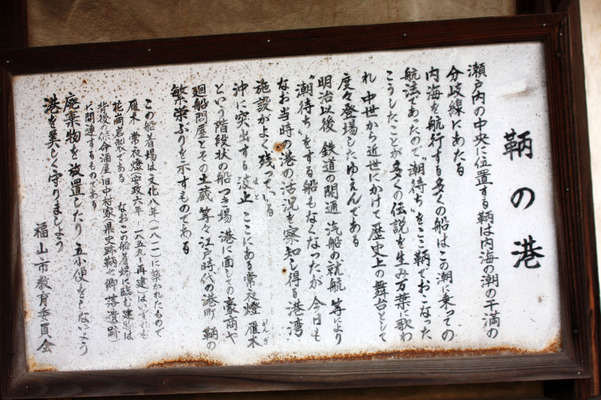 鞆の港
瀬戸内の中央に位置する鞆は内海の潮の干満の
分岐線にあたる
内海を航行する多くの船はこの潮に乗っての
航法であったので〝潮待ち〟をここ鞆でおこなった
こうしたことが多くの伝説を生み万葉に歌わ
れ 中世から近世にかけて歴史上の舞台として
度々登場したゆえんである
明治以後 鉄道の開通 汽船の就航 等により
〝潮待ち〟をする船もなくなったが 今日も
なお当時の港の活況を察知し得る港湾
施設がよく残っている
沖に突出する波止 ここにある常夜燈 雁木
という階段状の船つき場 港に面しての豪商や
廻船問屋とその土蔵 等々江戸時代の港町 鞆の
繁栄ぶりを示すものである
この船着場は文化八年(一八一一)に築かれたもので
雁木 常夜燈(安政六年 一八五九)再建はいずれも
花崗岩製である なおこの船着場に臨む建物は
保命酒屋旧中村家(県史跡鞆七卿落遺跡)
に関連するものである
廃棄物を放置したり 立小便をしないよう
港を美しく守りましょう
福山市教育委員会